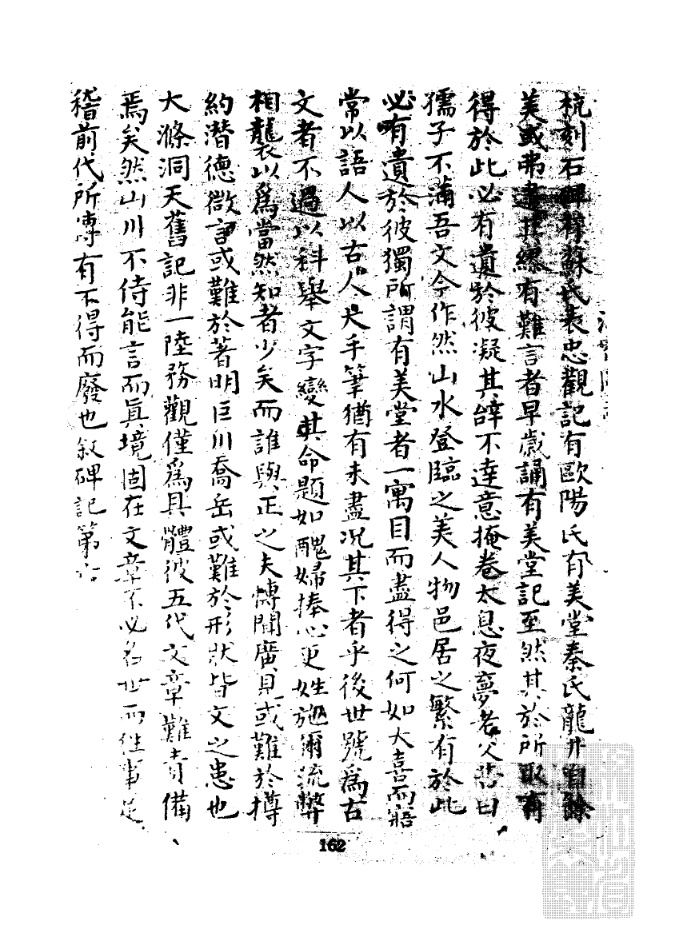 杭刻石碑釋蘇氏表忠觀記有歐陽氏有美堂秦氏龍井自餘
美或弗盡其繆有難言者早歲誦有美堂記至然其於所取有
得於此必有遺於彼凝其辞不達意掩卷太息夜夢老父語曰
孺子不滿吾文今作然山水登臨之美人物邑居之繁有於此
必有遺於彼獨所謂有美堂者一寓目而盡得之何如大喜而寤
常以語人以古人大手筆猶有未盡况其下者乎後世號為古
文者不過以科舉文字變其命題如醜婦捧心更姓施爾流弊
相襲以為當然知者少矣而誰與正之夫愽聞廣見或難於撙
約潜德微言或難於著明巨川喬岳或難於形狀皆文之患也
大滌洞天舊記非一陸務觀僅為具體彼五代文章難責備
焉矣然山川不待能言而真境固在文章不必名世而往事足
稽前代所傳有不得而廢也叙碑記第六
162